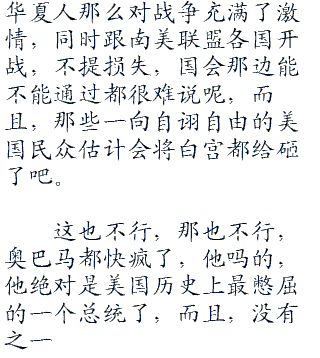 华夏人那么对战争充满了激
情，同时跟南美联盟各国开
战，不提损失，国会那边能
不能通过都很难说呢，而
且，那些一向自诩自由的美
国民众估计会将白宫都给砸
了吧。
这也不行，那也不行，
奥巴马都快疯了，他吗的，
他绝对是美国历史上最憋屈
的一个总统了，而且，没有
之一